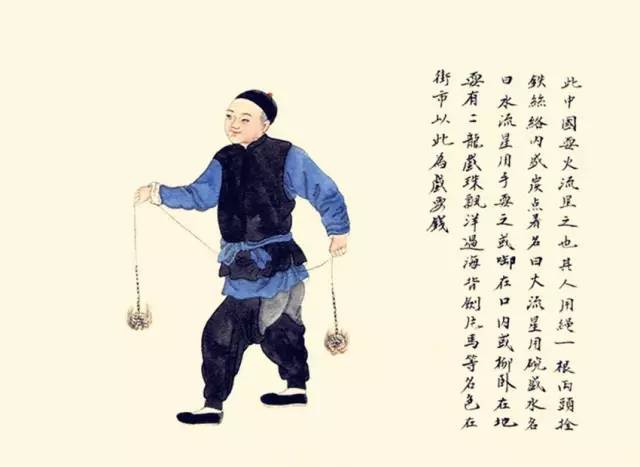 此中國耍火流星之也其人用繩一根兩頭拴
鉄絲絡內盛炭点着名曰大流星用碗盛水名
曰水流星用手耍之或啣在口內或柳卧在地
耍有二龍戲珠觀洋過海背劍馬等名色在
街市以此為戲耍錢